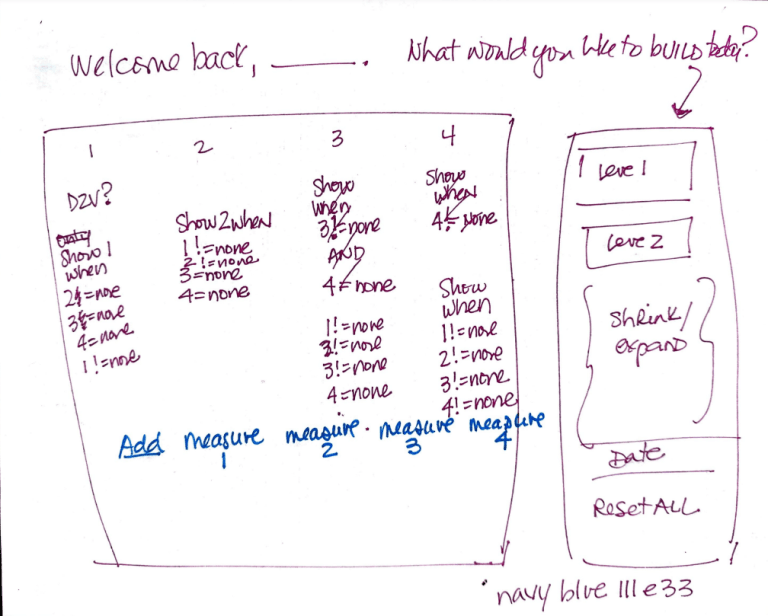 Welcome back, ______. What would you like to build today?
1
DZV?
Show 1
when
2!=none
3!=none
4=none
1!=none
2
Show 2 when
1!=none
2!=none
3=none
4=none
3
Show
when
3!=none
AND
4!=none
1!=none
3!=none
3!=none
4=none
4
Show
when
4!=none
Show
when
1!=none
2!=none
3!=none
4!=none
Add measure 1 measure 2 measure 3 measure 4
Level 1
Level 2
Shrink/
expand
Date
Reset ALL
navy blue 111e33